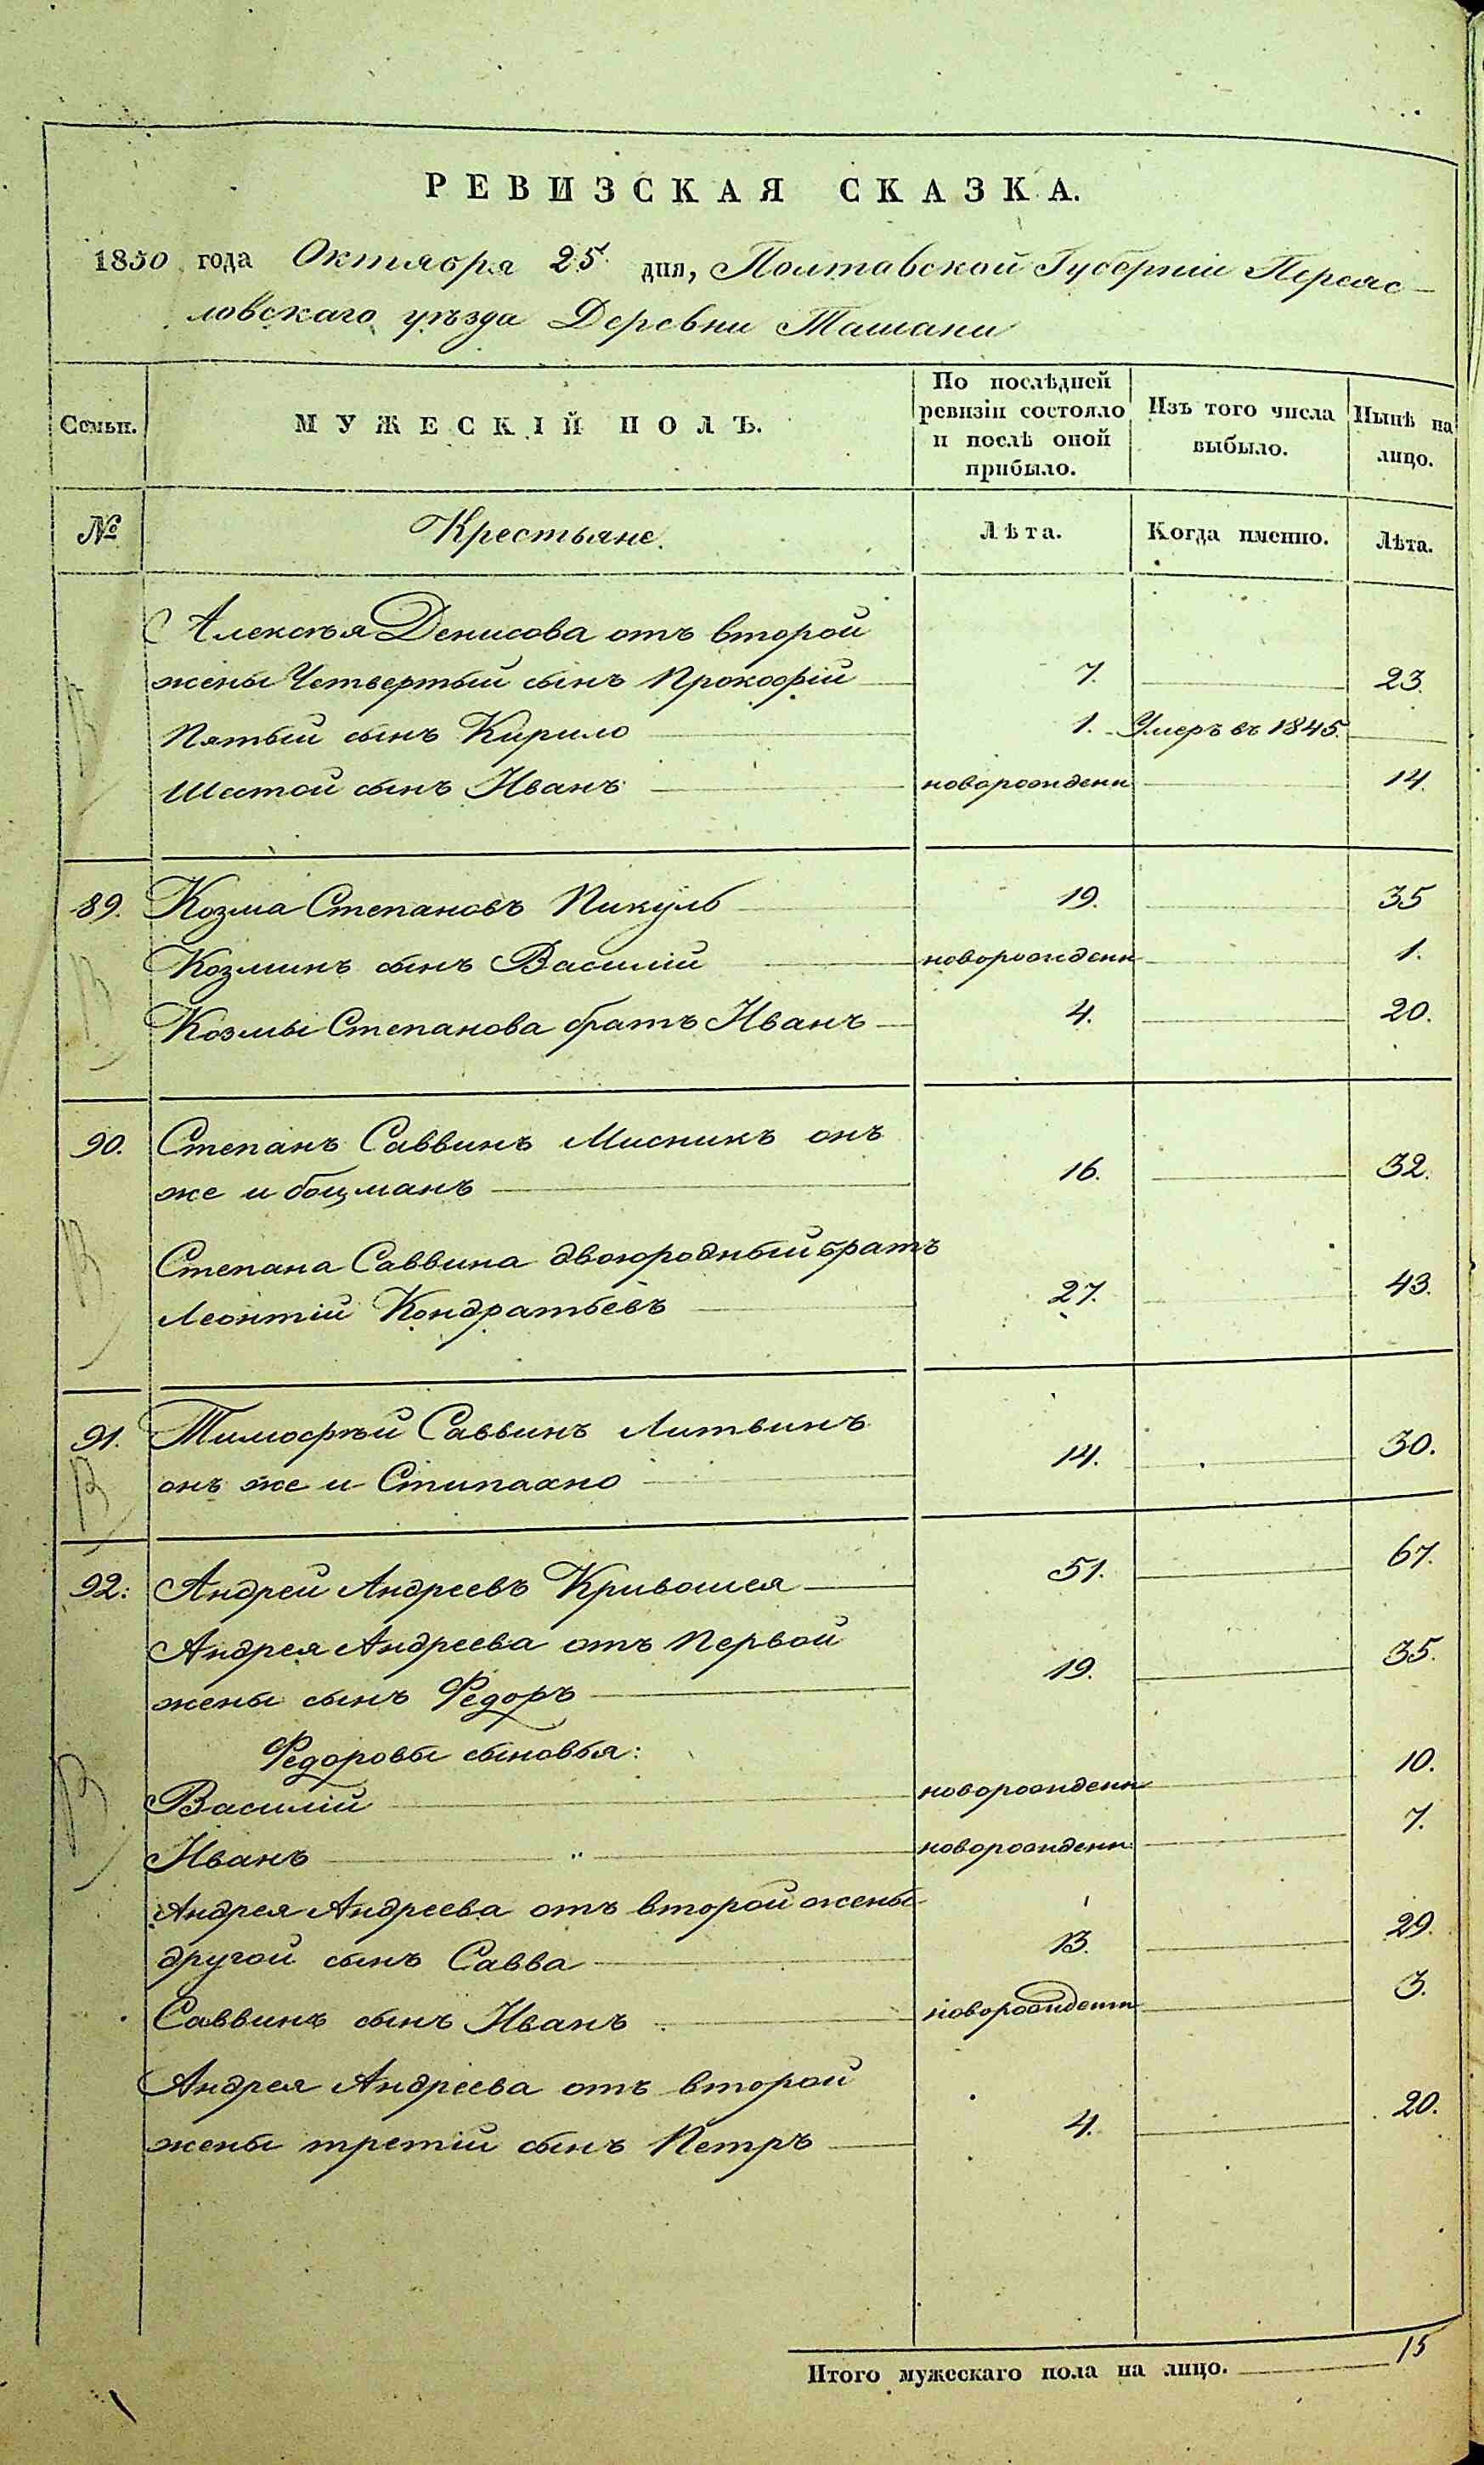 РЕВИЗСКАЯ СКАЗКА.
1850 года Октября 25 дня, Полтавской Губерніи Переяс-
ловскаго уѣзда Деревни Ташани
Семьи.
МУЖЕСКІЙ ПОЛЪ.
По послѣдней ревизіи состояло и послѣ оной прибыло.
Изъ того числа выбыло.
Нынѣ на лицо.
№ Крестьяне. Лѣта. Когда именно. Лѣта.
Алексѣя Денисова отъ второй
жены Четвертый сынъ Прокофій 7. 23.
Пятый сынъ Кирило 1. Умеръ въ 1845.
Шестой сынъ Иванъ новорожденн 14.
89. Козма Степановъ Пикуль 19. 35
Козминъ сынъ Василій новорожденн 1.
Козмы Степанова братъ Иванъ 4. 20.
90. Степанъ Саввинъ Мисникъ онъ
же и боцманъ 16. 32.
Степана Саввина двоюродный братъ
Леонтій Кондратьевъ 27. 43.
91. Тимофѣй Саввинъ Литвинъ
онъ же и Стипахно 14. 30.
92. Андрей Андреевъ Кривошея 51. 67.
Андрея Андреева отъ Первой
жены сынъ Федоръ 19. 35.
Федоровы сыновья:
Василій новорожденн 10.
Иванъ " новорожденн. 7.
Андрея Андреева отъ второй жены
другой сынъ Савва 13. 29.
Саввинъ сынъ Иванъ новорожденн 3.
Андрея Андреева отъ второй
жены третій сынъ Петръ 4. 20.
Итого мужескаго пола на лицо. 15